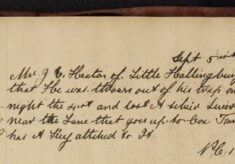 Sept 5
Mr J C Heaton of Little Hallingbury
that He was thrown out of his trap on
night the and lost A silver
near the Lane that goes up to Cox
has A Key attched to It.
P.C. 1